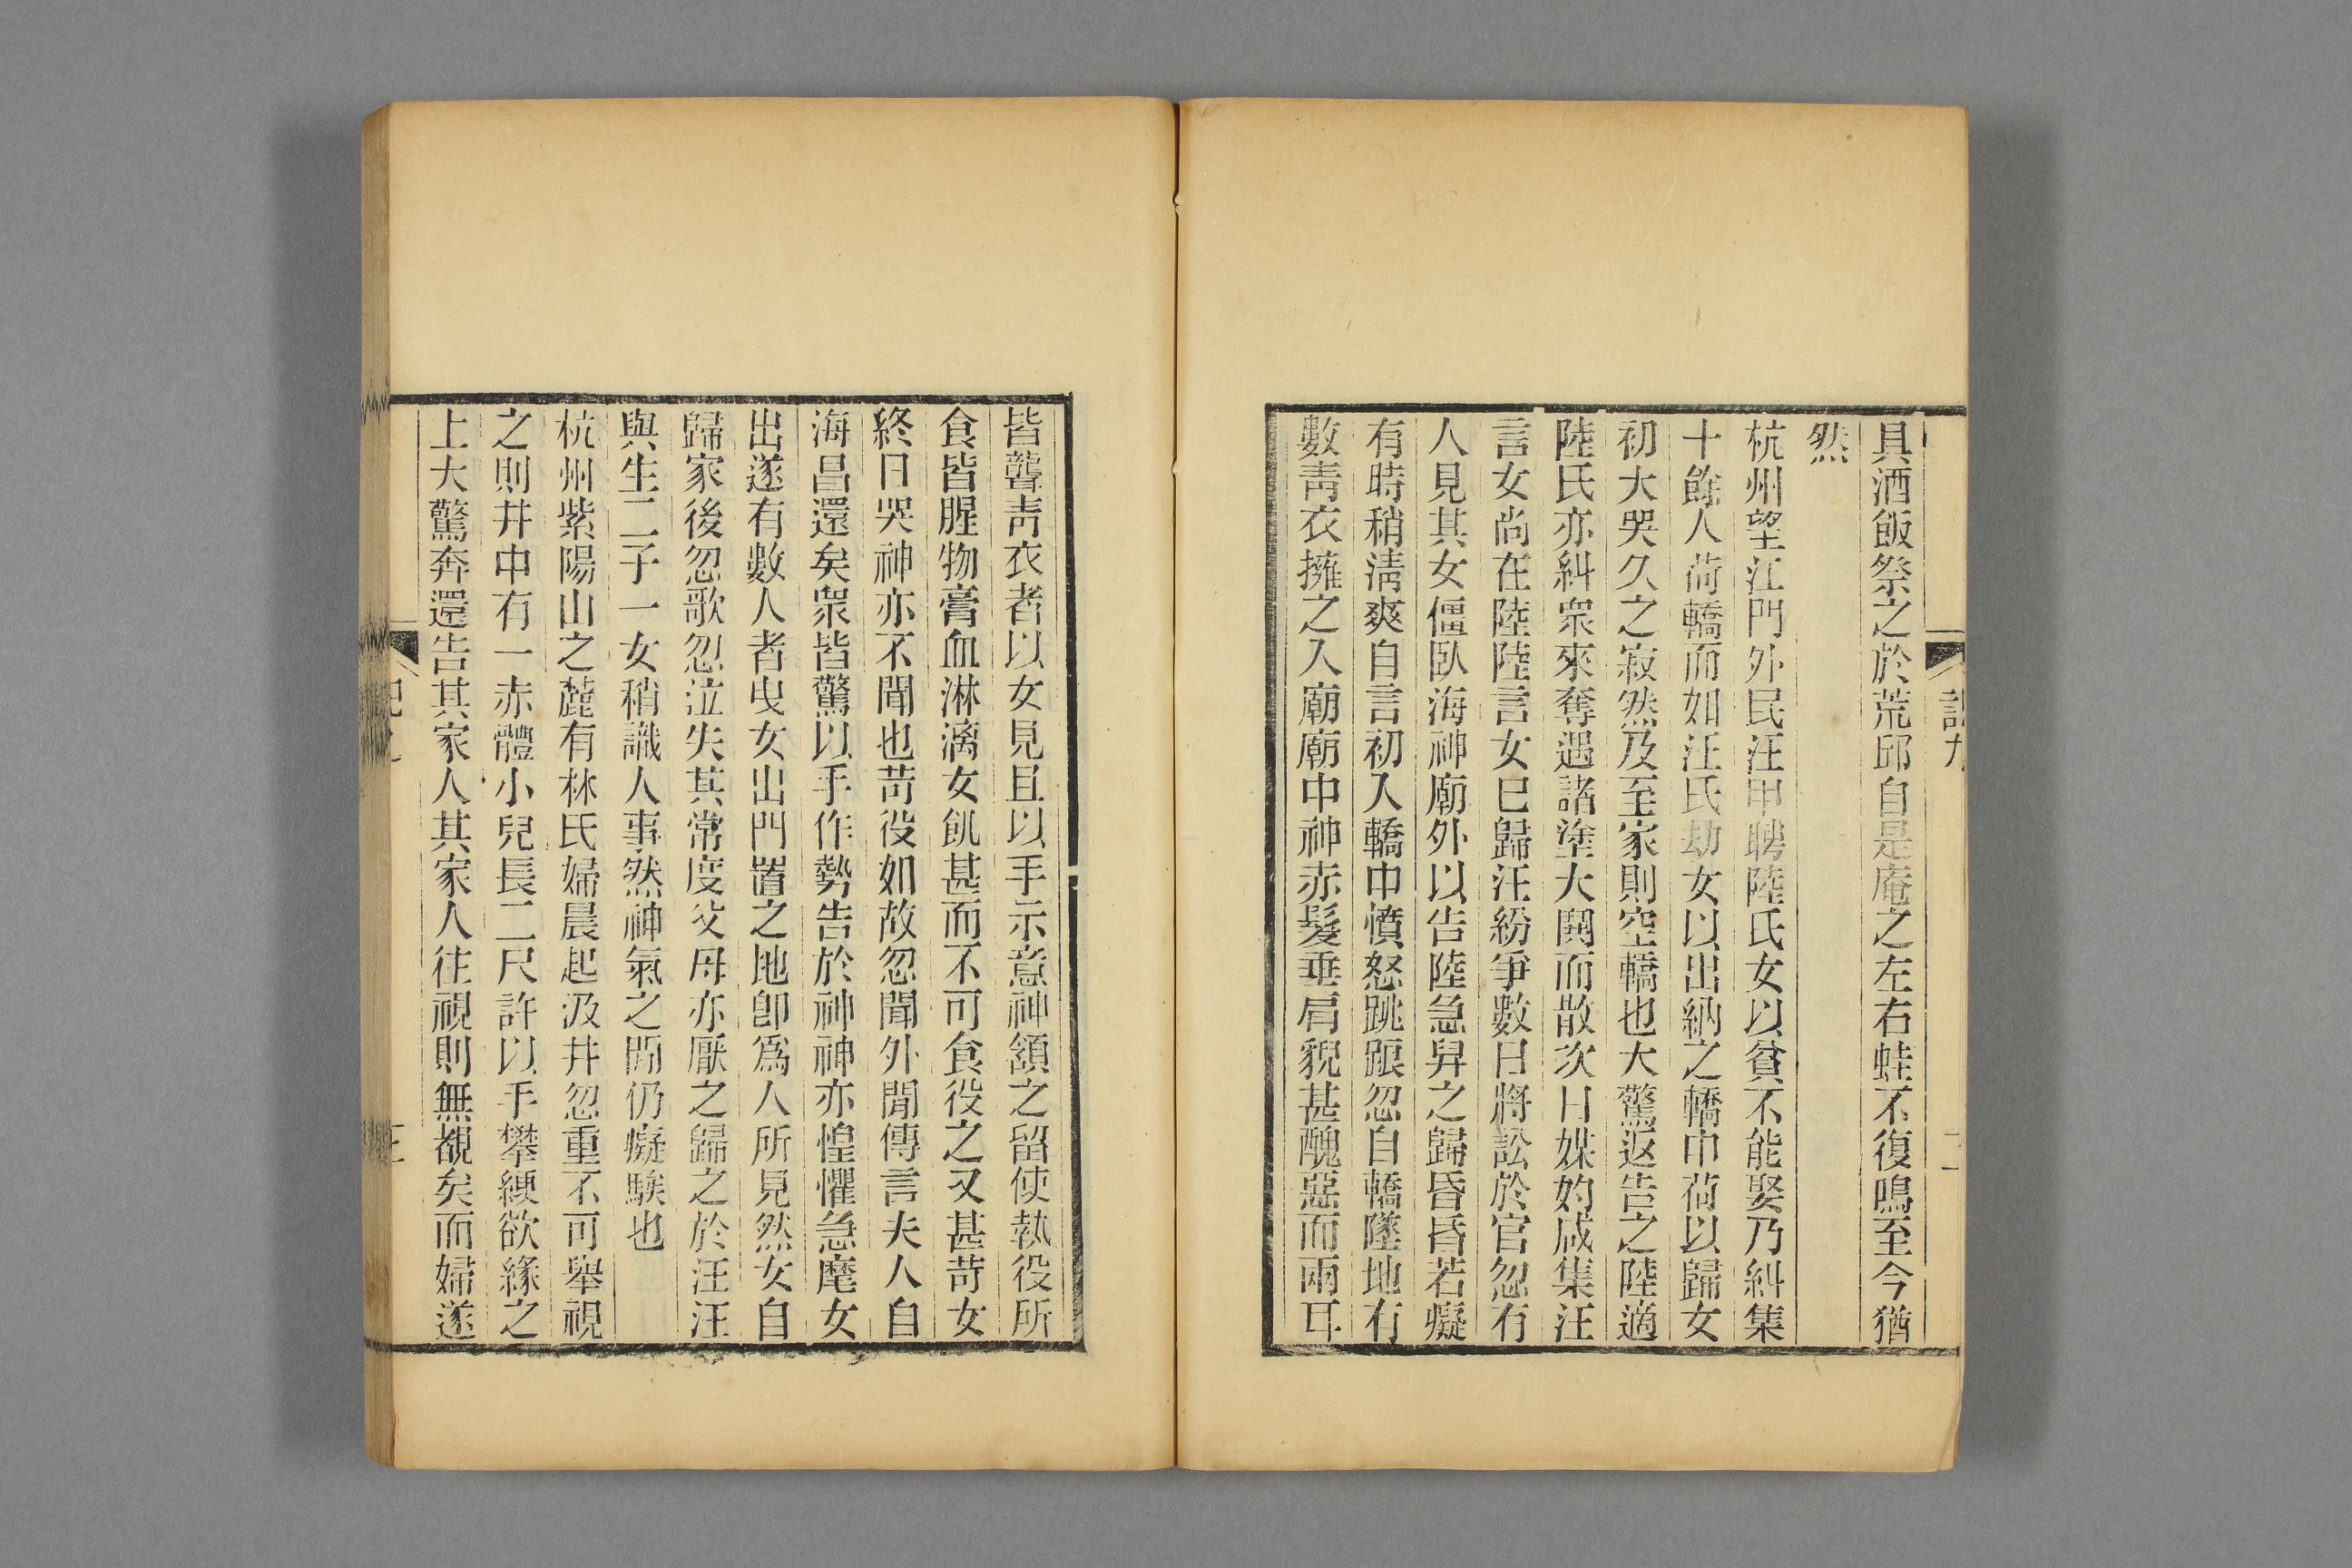 具酒飯祭之於荒邱自是庵之左右蛙不復鳴至今猶
然
杭州望江門外民汪甲聘陸氏女以貧不能娶乃糾集
十餘人荷轎而如汪氏劫女以出納之轎中荷以歸女
初大哭久之寂然及至家則空轎也大驚返告之陸適
陸氏亦糾衆來奪遇諸塗大鬨而散次日媒妁咸集汪
言女尚在陸陸言女已歸汪紛爭數日將訟於官忽有
人見其女僵臥海神廟外以告陸急舁之歸昏昏若癡
有時稍淸爽自言初入轎中憤怒跳踉忽自轎墜地有
數靑衣擁之入廟廟中神赤髮垂肩貌甚醜惡而兩耳
皆聾靑衣者以女見且以手示意神頷之留使執役所
食皆腥物膏血淋漓女飢甚而不可食役之又甚苛女
終日哭神亦不聞也苛役如故忽聞外閒傳言夫人自
海昌還矣衆皆驚以手作勢告於神神亦惶懼急麾女
出遂有數人者曳女出門置之地卽爲人所見然女自
歸家後忽歌忽泣失其常度父母亦厭之歸之於汪汪
與生二子一女稍識人事然神氣之閒仍癡騃也
杭州紫陽山之麓有林氏婦晨起汲井忽重不可舉視
之則井中有一赤體小兒長二尺許以手攀綆欲緣之
上大驚奔還告其家人其家人往視則無覩矣而婦遂